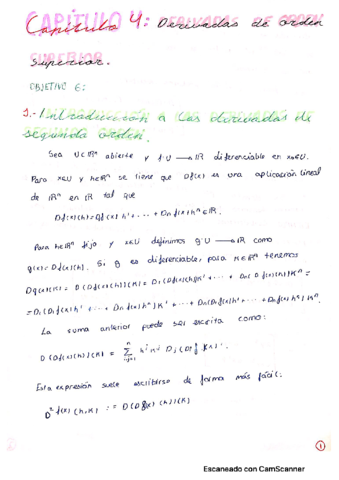 CAPÍTULO 4: Derivadas de orden
Capítulo
superior.
OBJETIVO 6:
1.- Introducción a las derivadas de
segunda orden.
Sea U⊂ℝⁿ abierto y f: U → ℝ diferenciable en x∈U.
Para x∈U y h∈ℝⁿ se tiene que Df(x) es una aplicación lineal
de ℝⁿ en ℝ tal que
Df(x)(h) = D₁f(x)h¹ + ··· + Dₙf(x)hⁿ ∈ ℝ.
Para h∈ℝⁿ fijo y x∈U definimos g: U → ℝ como
g(x) = Df(x)(h). Si g es diferenciable, para k∈ℝⁿ tenemos
La suma anterior puede ser escrita como:
Esta expresión suele escribirse de forma más fácil:
D²f(x)(h,k) := D(Df(x)(h))(k)
1
Escaneado con CamScanner